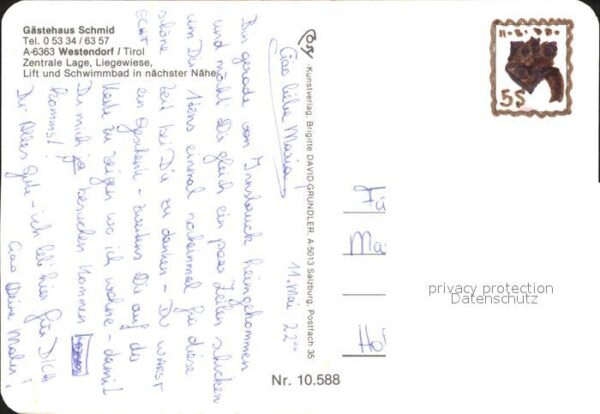 Gästehaus Schmid
Tel. 0 53 34 / 63 57
A-6363 Westendorf / Tirol
Zentrale Lage, Liegewiese,
Lift und Schwimmbad in nächster Nähe
Cosy - Kunstverlag, Brigitte DAVID-GRÜNDLER, A-5013 Salzburg, Postfach 35
Nr. 10.588
5 S
11. Mai 22
Ciao liebe Maria
Bin gerade von Innsbruck heimgekommen
und möcht Dir gleich ein paar Zeilen schicken
um Dir 1tens einmal nocheinmal für diese
schöne Zeit bei Dir zu danken - Du WARST
ECHT ein Geschenk - zweitens Dir auf der
Karte zu zeigen wo ich wohne - damit
Du mich ja besuchen kommen
kommst!
Dir Alles Gute - ich leb' hier für DICH
Ciao Deine
Ma
privacy protection
Datenschutz